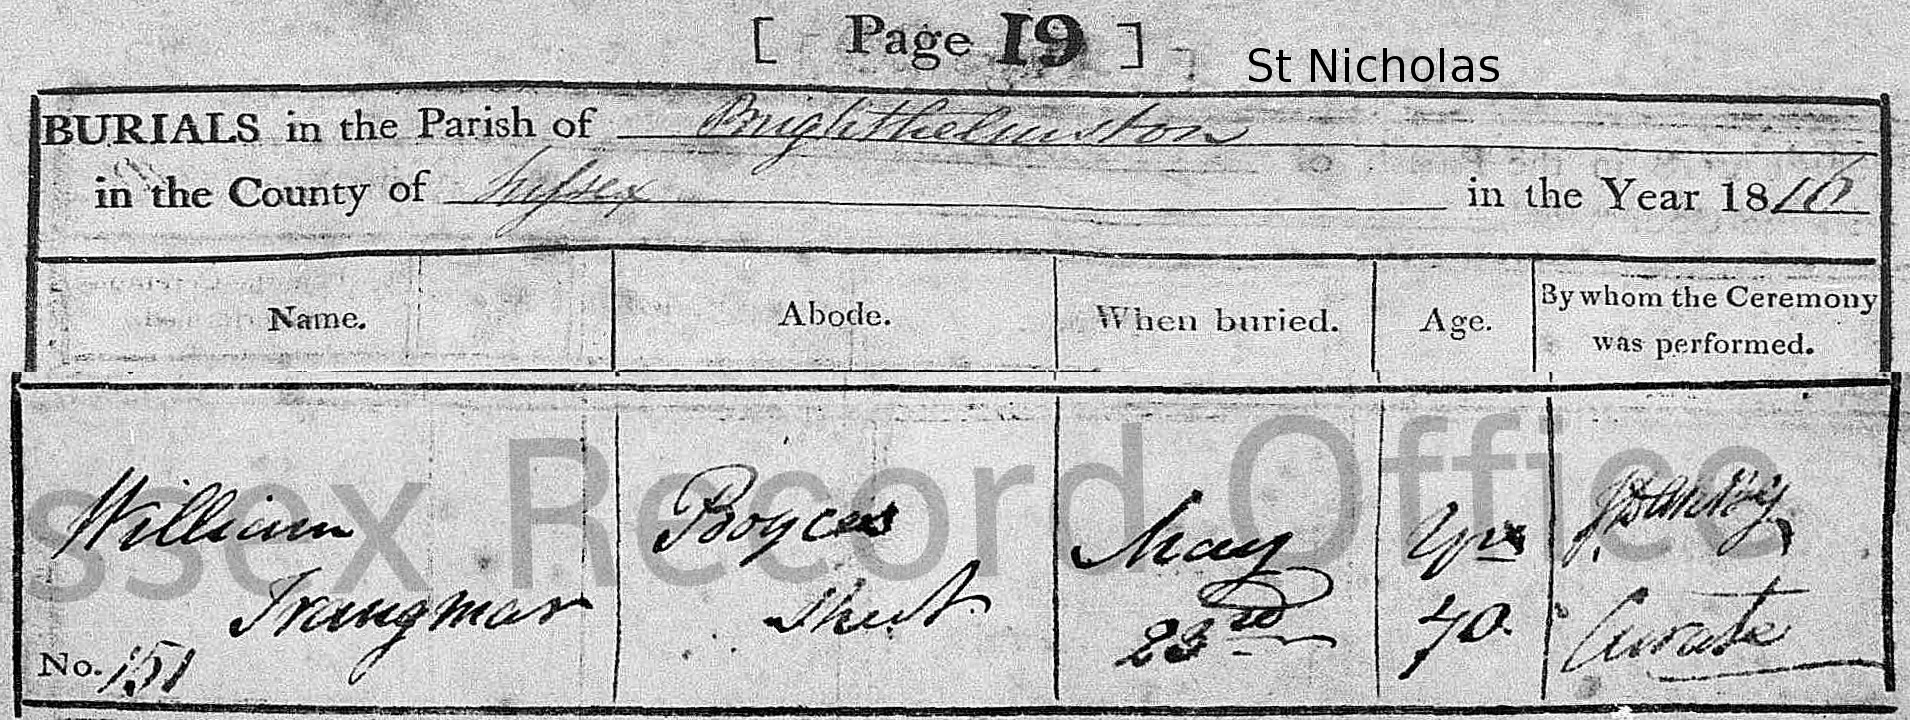 [ Page 19 ]
St Nicholas
BURIALS in the Parish of Brighthelmston
in the County of Sussex in the Year 1816
Name.
Abode.
When buried.
Age.
By whom the Ceremony
was performed.
ssex Record Office
William
Trangmar
No. 151
Boyces
Street
May
23rd
Yrs
70.
Curate